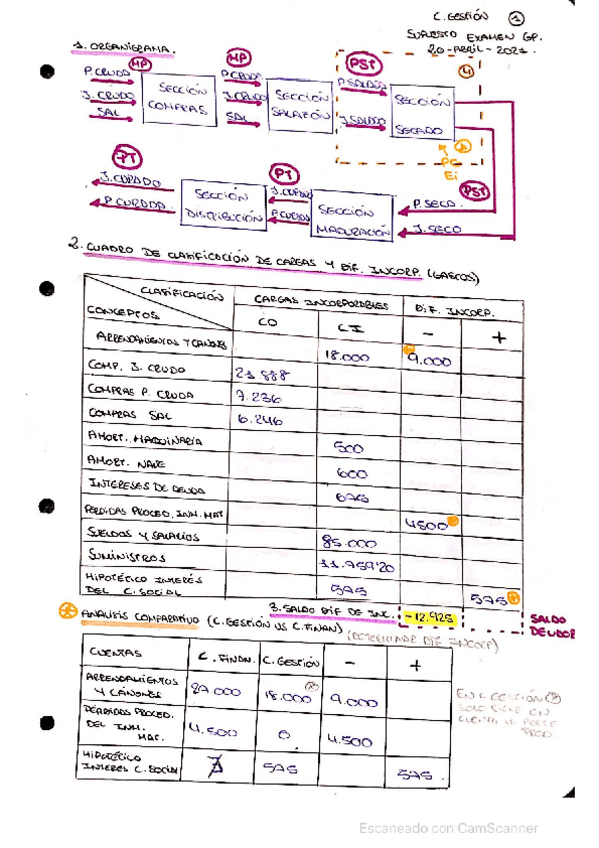 C. GESTIÓN 1
SUPUESTO EXAMEN GP.
20-ABRIL-2021.
1. ORGANIGRAMA.
MP
P. CRUDA
J. CRUDO
SAL
SECCIÓN
COMPRAS
MP
P. CRUDA
J. CRUDO
SAL
SECCIÓN
SALAZÓN
PST
P. SALADA
J. SALADO
SECCIÓN
SECADO
4
2
PC
Ei
PT
J. CURADO
P. CURADA.
SECCIÓN
DISTRIBUCIÓN
PT
J. CURADO
P. CURADA
SECCIÓN
MADURACIÓN
PST
P. SECO.
J. SECO
2. CUADRO DE CLASIFICACIÓN DE CARGAS Y DIF. INCORP. (GASTOS)
CLASIFICACIÓN
CONCEPTOS
CARGAS INCORPORABLES
DIF. INCORP.
CD CI - +
ARRENDAMIENTOS Y CANONES 18.000 9.000
COMP. J. CRUDO 21 888
COMPRAS P. CRUDA 7.236
COMPRAS SAL 6.246
AMORT. MAQUINARIA 500
AMORT. NAVE 600
INTERESES DE DEUDA 675
PERDIDAS PROCED. INM. MAT 4500
SUELDOS Y SALARIOS 85.000
SUMINISTROS 11.759'20
HIPOTÉTICO INTERÉS
DEL C. SOCIAL 575 575
3. SALDO DIF DE INC. -12.925 SALDO
DEUDOR
ANALISIS COMPARATIVO (C. GESTIÓN VS C. FINAN) (DETERMINAR DIF. INCORP)
CUENTAS C. FINAN. C. GESTIÓN - +
ARRENDAMIENTOS
Y CÁNONES 27 000 18.000 9.000
PÉRDIDAS PROCED.
DEL INM.
MAT. 4.500 0 4.500
HIPOTÉTICO
INTERES C. SOCIAL 575 575
EN C GESTIÓN
SOLO TIENE EN
CUENTA LA PARTE
PROD
Escaneado con CamScanner